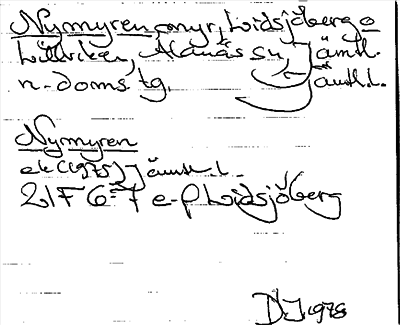 Nymyren, myr, Lidsjöberg o
Lillviken, Alanäs sn, Jämtl.
n. doms. tg. Jämtl. l.
Nymyren
ek (1975) Jämtl. l.
21F 6-7 e-f Lidsjöberg
DJ 1978